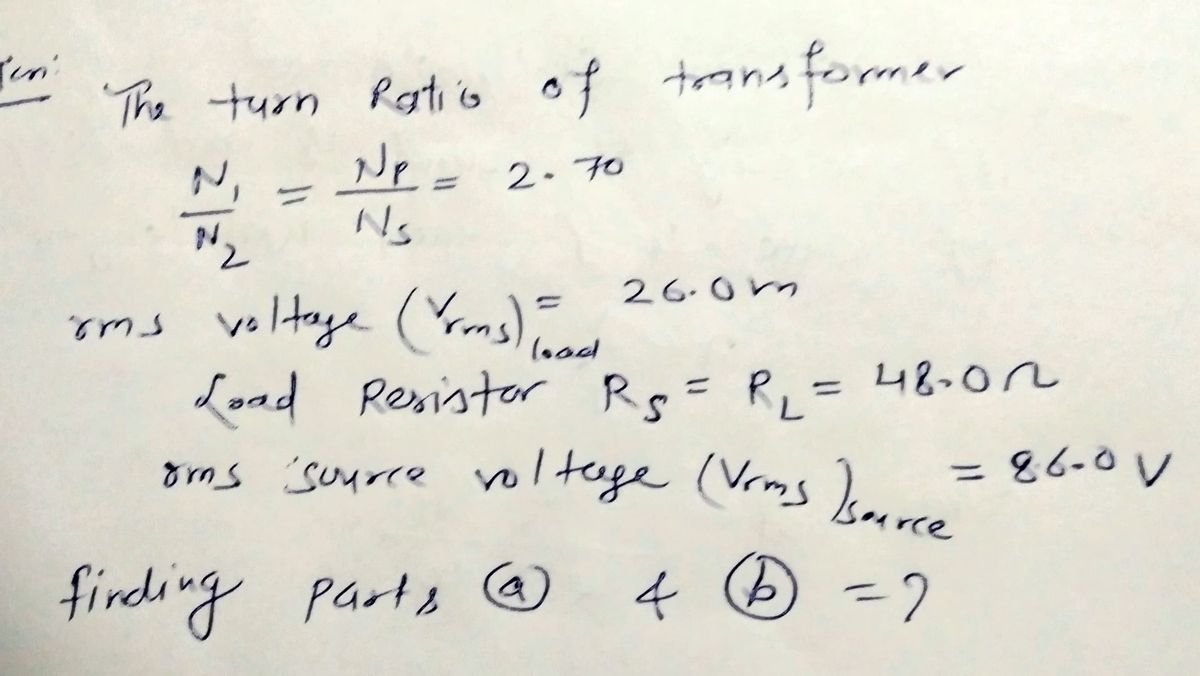 The turn Ratio of transformer
N₁/N₂ = Np/Ns = 2.70
rms voltage (Vrms)load = 26.0
Load Resistor Rs = RL = 48.0Ω
rms source voltage (Vrms)source = 86.0 V
finding parts ⓐ & ⓑ = ?